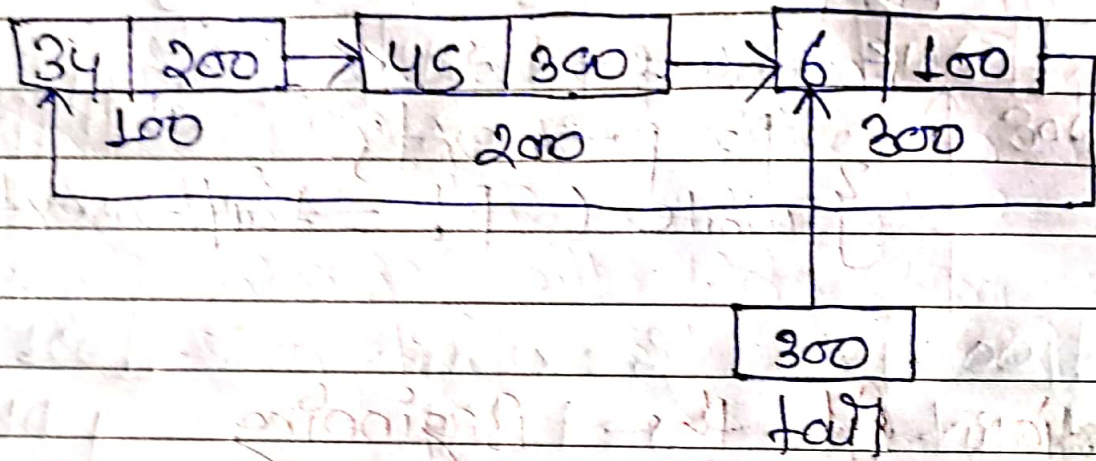 34 200 45 300 6 100
100 200 300
300
tail